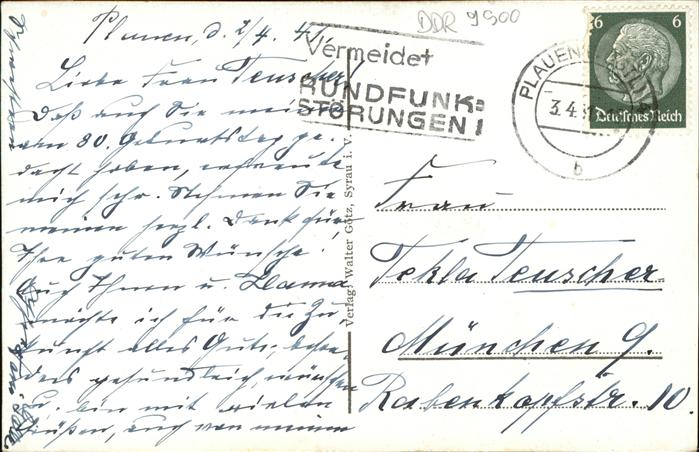 DDR 9900
Plauen, d. 2/4. 41.
Liebe Frau Teuscher!
Daß auch Sie meiner
am 80. Geburtstag ge-
dacht haben, erfreute
mich sehr. Nehmen Sie
meinen herzl. Dank für
Ihre guten Wünsche.
Auch Ihnen u.
möchte ich für die Zu-
kunft alles Gute, beson-
ders gesundheitlich, wünschen
u. bin mit vielen
Grüßen, auch von meinen
Vermeidet
RUNDFUNK=
STÖRUNGEN!
PLAUEN
3.4.
b
6 6
Deutsches Reich
Verlag: Walter Götz, Syrau i. V.
Frau
Tekla Teuscher
München 9.
Rabenkopfstr. 10.